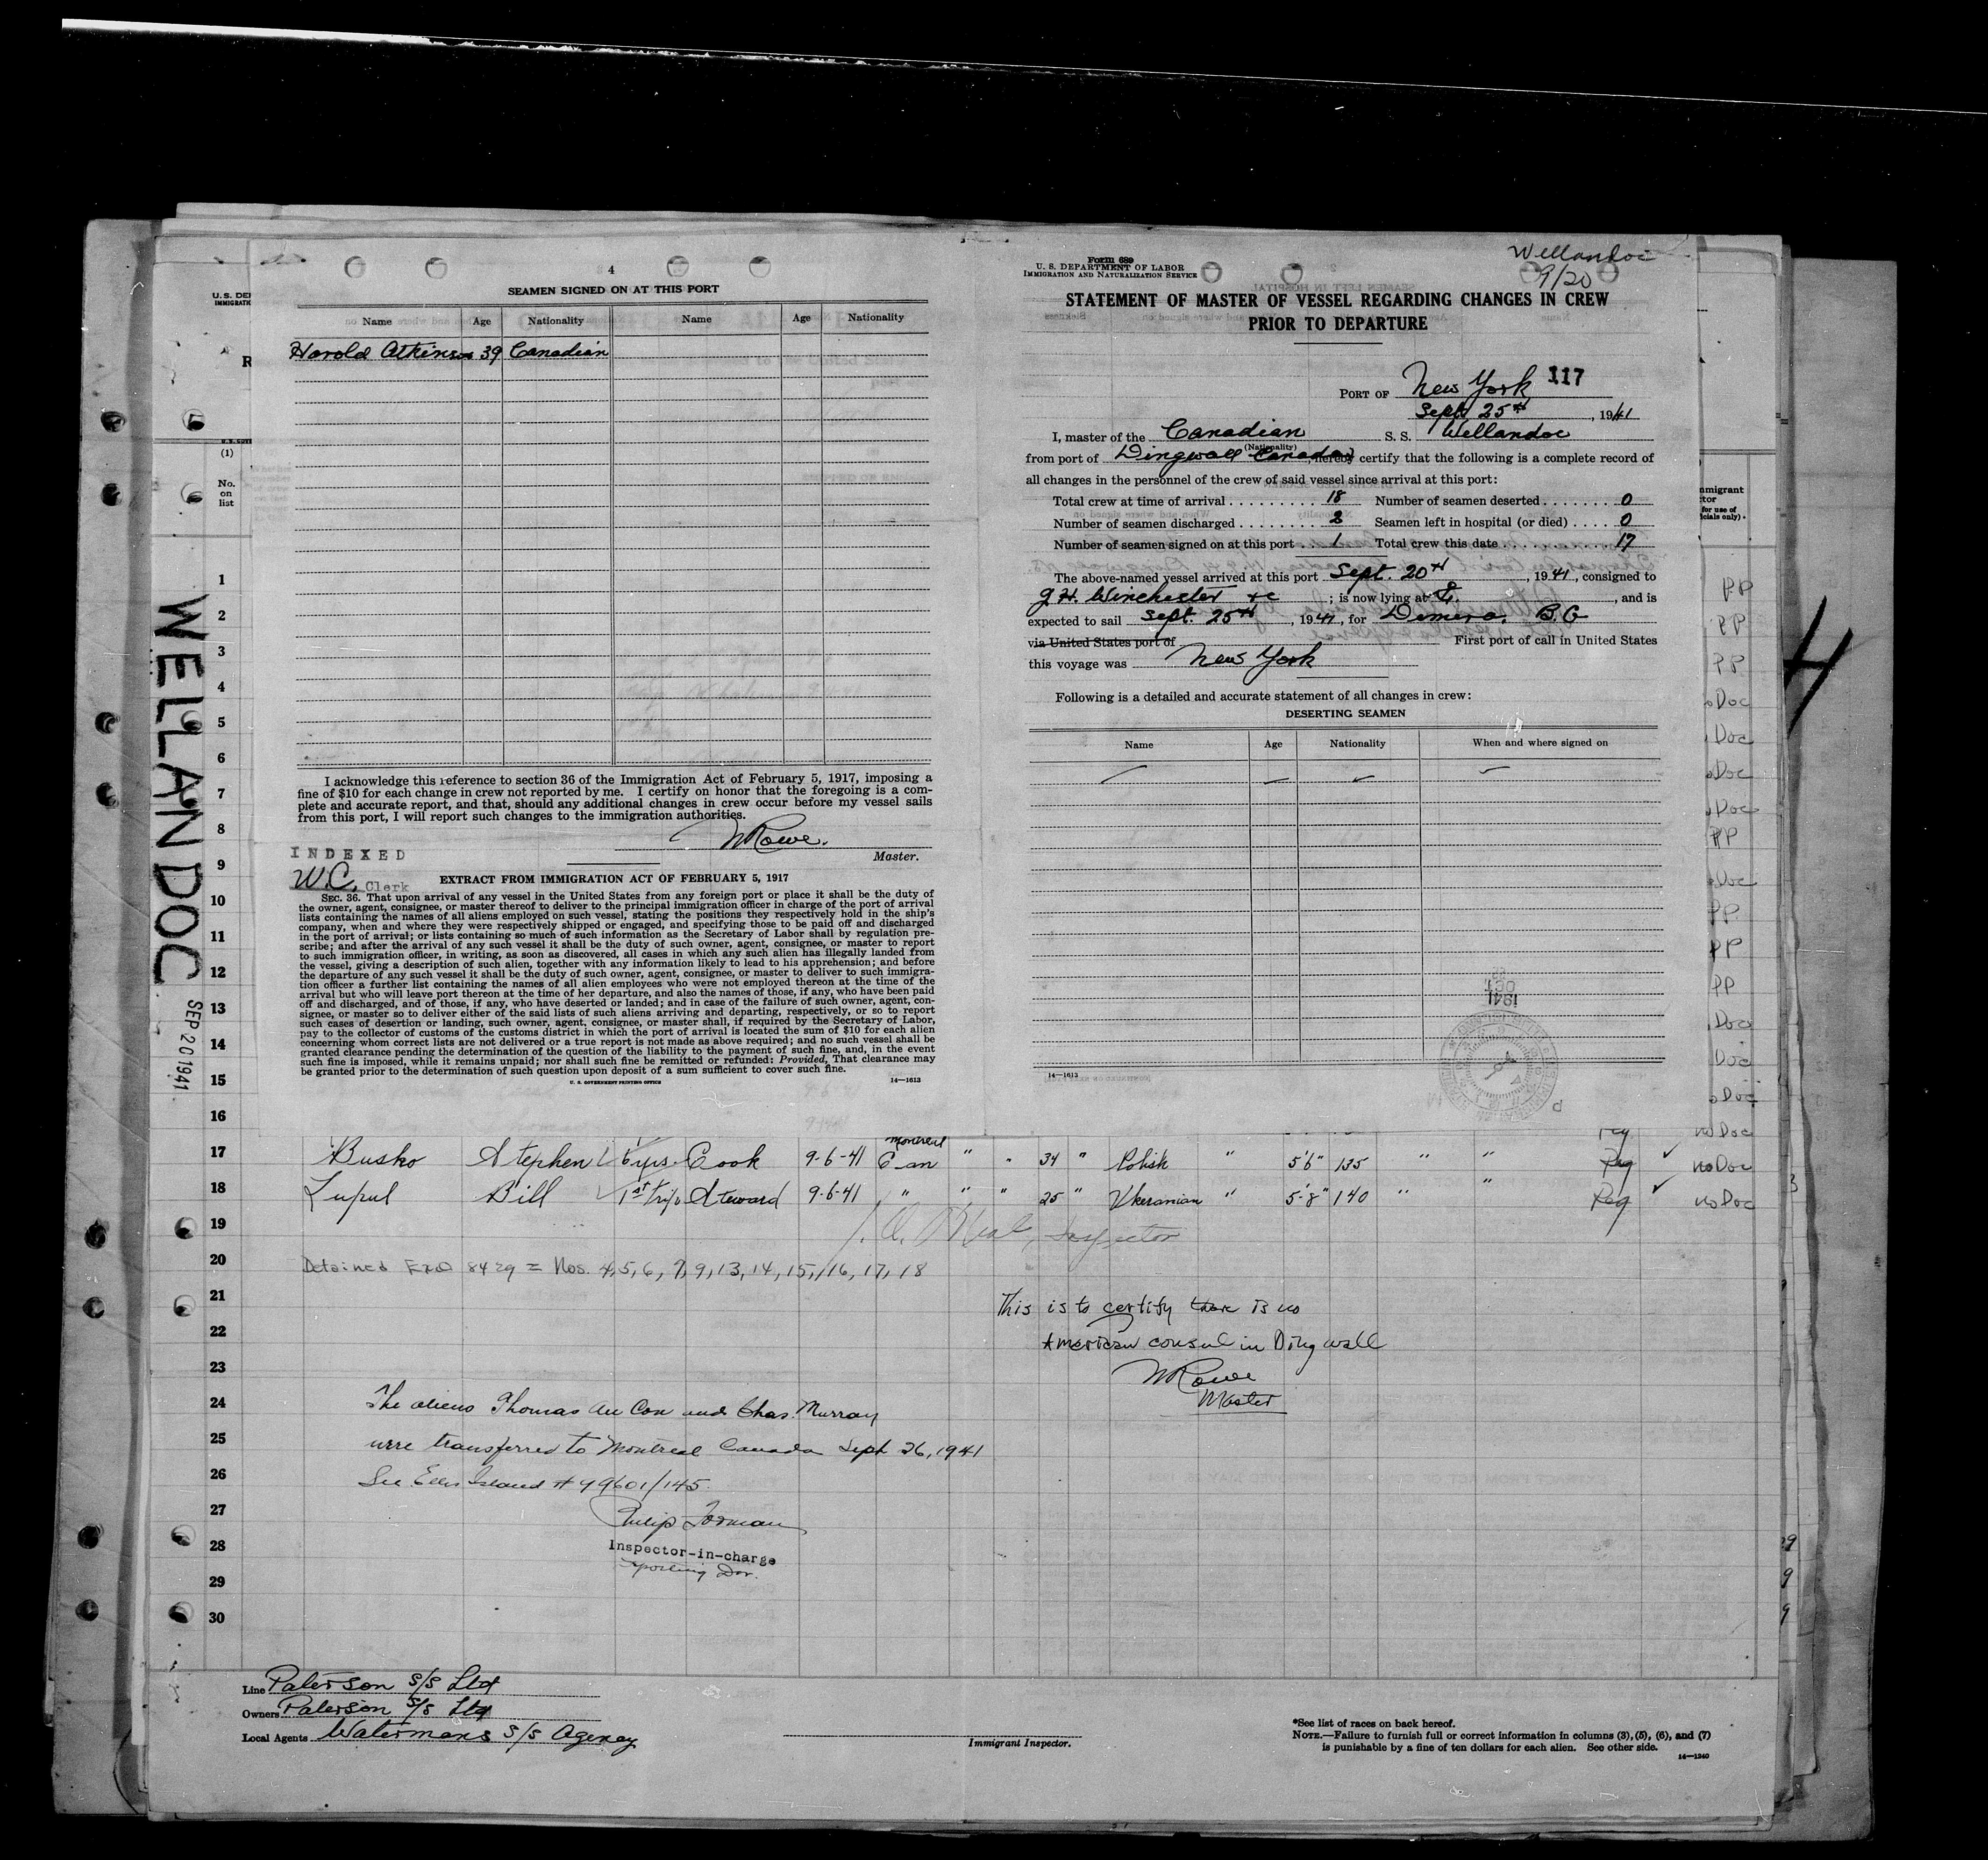 4
SEAMEN SIGNED ON AT THIS PORT
Name Age Nationality Name Age Nationality
Harold Atkinson 39 Canadian
I acknowledge this reference to section 36 of the Immigration Act of February 5, 1917, imposing a
fine of $10 for each change in crew not reported by me. I certify on honor that the foregoing is a com-
plete and accurate report, and that, should any additional changes in crew occur before my vessel sails
from this port, I will report such changes to the immigration authorities.
WRowe.
Master.
INDEXED
W.C. Clerk
EXTRACT FROM IMMIGRATION ACT OF FEBRUARY 5, 1917
SEC. 36. That upon arrival of any vessel in the United States from any foreign port or place it shall be the duty of
the owner, agent, consignee, or master thereof to deliver to the principal immigration officer in charge of the port of arrival
lists containing the names of all aliens employed on such vessel, stating the positions they respectively hold in the ship's
company, when and where they were respectively shipped or engaged, and specifying those to be paid off and discharged
in the port of arrival; or lists containing so much of such information as the Secretary of Labor shall by regulation pre-
scribe; and after the arrival of any such vessel it shall be the duty of such owner, agent, consignee, or master to report
to such immigration officer, in writing, as soon as discovered, all cases in which any such alien has illegally landed from
the vessel, giving a description of such alien, together with any information likely to lead to his apprehension; and before
the departure of any such vessel it shall be the duty of such owner, agent, consignee, or master to deliver to such immigra-
tion officer a further list containing the names of all alien employees who were not employed thereon at the time of the
arrival but who will leave port thereon at the time of her departure, and also the names of those, if any, who have been paid
off and discharged, and of those, if any, who have deserted or landed; and in case of the failure of such owner, agent, con-
signee, or master so to deliver either of the said lists of such aliens arriving and departing, respectively, or so to report
such cases of desertion or landing, such owner, agent, consignee, or master shall, if required by the Secretary of Labor,
pay to the collector of customs of the customs district in which the port of arrival is located the sum of $10 for each alien
concerning whom correct lists are not delivered or a true report is not made as above required; and no such vessel shall be
granted clearance pending the determination of the question of the liability to the payment of such fine, and, in the event
such fine is imposed, while it remains unpaid; nor shall such fine be remitted or refunded: Provided, That clearance may
be granted prior to the determination of such question upon deposit of a sum sufficient to cover such fine.
U. S. GOVERNMENT PRINTING OFFICE 14—1613
Wellandoc
9/20
Form 689
U. S. DEPARTMENT OF LABOR
IMMIGRATION AND NATURALIZATION SERVICE
STATEMENT OF MASTER OF VESSEL REGARDING CHANGES IN CREW
PRIOR TO DEPARTURE
PORT OF New York 117
Sept 25th, 1941
I, master of the Canadian S. S. Wellandoc
(Nationality)
from port of Dingwall Canada, hereby certify that the following is a complete record of
all changes in the personnel of the crew of said vessel since arrival at this port:
Total crew at time of arrival 18 Number of seamen deserted 0
Number of seamen discharged 2 Seamen left in hospital (or died) 0
Number of seamen signed on at this port 1 Total crew this date 17
The above-named vessel arrived at this port Sept. 20th, 1941, consigned to
J.H. Winchester + c ; is now lying at , and is
expected to sail Sept. 25th, 1941, for Demera. B.G
via United States port of First port of call in United States
this voyage was New York
Following is a detailed and accurate statement of all changes in crew:
DESERTING SEAMEN
Name Age Nationality When and where signed on
OCT
1941
14—1613
WELLANDOC SEP 20 1941
U.S. DEP
IMMIGRATI
(1)
No.
on
list
1
2
3
4
5
6
7
8
9
10
11
12
13
14
15
16
nmigrant
ctor
for use of
icials only)
PP
PP
PP
oDoc
Doc
oDoc
Doc
PP
oDoc
PP
PP
PP
Doc
Doc
oDoc
noDoc
H
17 Busko Stephen 6 yrs. Cook 9-6-41 Montreal Can " " 34 " Polish " 5'6" 135 " " Reg noDoc
18 Lupul Bill 1st trip Steward 9-6-41 " " " 25 " Ukeranian " 5-8" 140 " " Reg noDoc
19 Inspector
20 Detained ExO 8429 = Nos. 4, 5, 6, 7, 9, 13, 14, 15, 16, 17, 18
21 This is to certify there is no
22 American consul in Dingwall
23 WRowe
Master
24 The aliens Thomas Au Coin and Chas. Murray
25 were transferred to Montreal Canada Sept 26, 1941
26 See Ellis Island # 99601/145.
27 Philip Forman
28 Inspector-in-charge
29
30
Line Paterson S/S Ltd
Owners Paterson S/S Ltd
Local Agents Watermans S/S Agency
Immigrant Inspector.
*See list of races on back hereof.
NOTE.—Failure to furnish full or correct information in columns (3), (5), (6), and (7)
is punishable by a fine of ten dollars for each alien. See other side.
14—1240